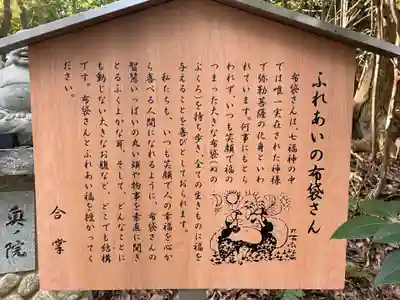 ふれあいの布袋さん
布袋さんは、七福神の中
では唯一実在された神様
で弥勒菩薩の化身といわ
れています。何事にもとら
われず、いつも笑顔で福の
つまった大きな布袋(ぬの
ぶくろ)を持ち歩き、全ての生きものに福を
与えることを喜びとしておられます。
私たちも、いつも笑顔で人の幸福を心か
ら喜べる人間になれるように、布袋さんの
智慧いっぱいの丸い頭や物事を素直に聞き
とるふくよかな耳、そして、どんなことに
も動じない大きなお腹など、どこでも結構
です。布袋さんとふれあい福を授かってく
ださい。
合掌
奥ノ院